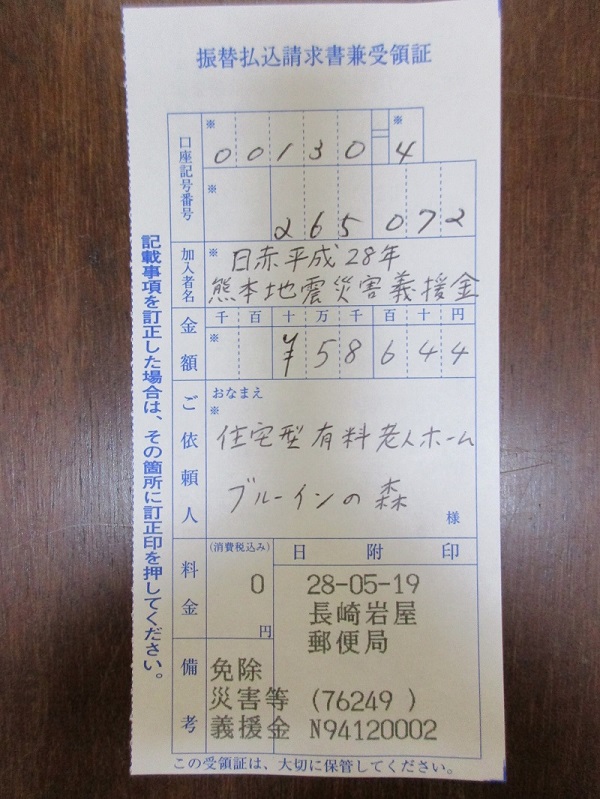 振替払込請求書兼受領証
口座記号番号
※ 00130 ※ 4
※ 265072
加入者名
※ 日赤平成28年
熊本地震災害義援金
金額
千 百 十 万 千 百 十 円
※ ¥58644
ご依頼人
おなまえ
※
住宅型有料老人ホーム
ブルーインの森
様
料金
(消費税込み)
0
円
日附印
28-05-19
長崎岩屋
郵便局
備考
免除
災害等 (76249 )
義援金 N94120002
この受領証は、大切に保管してください。
記載事項を訂正した場合は、その箇所に訂正印を押してください。